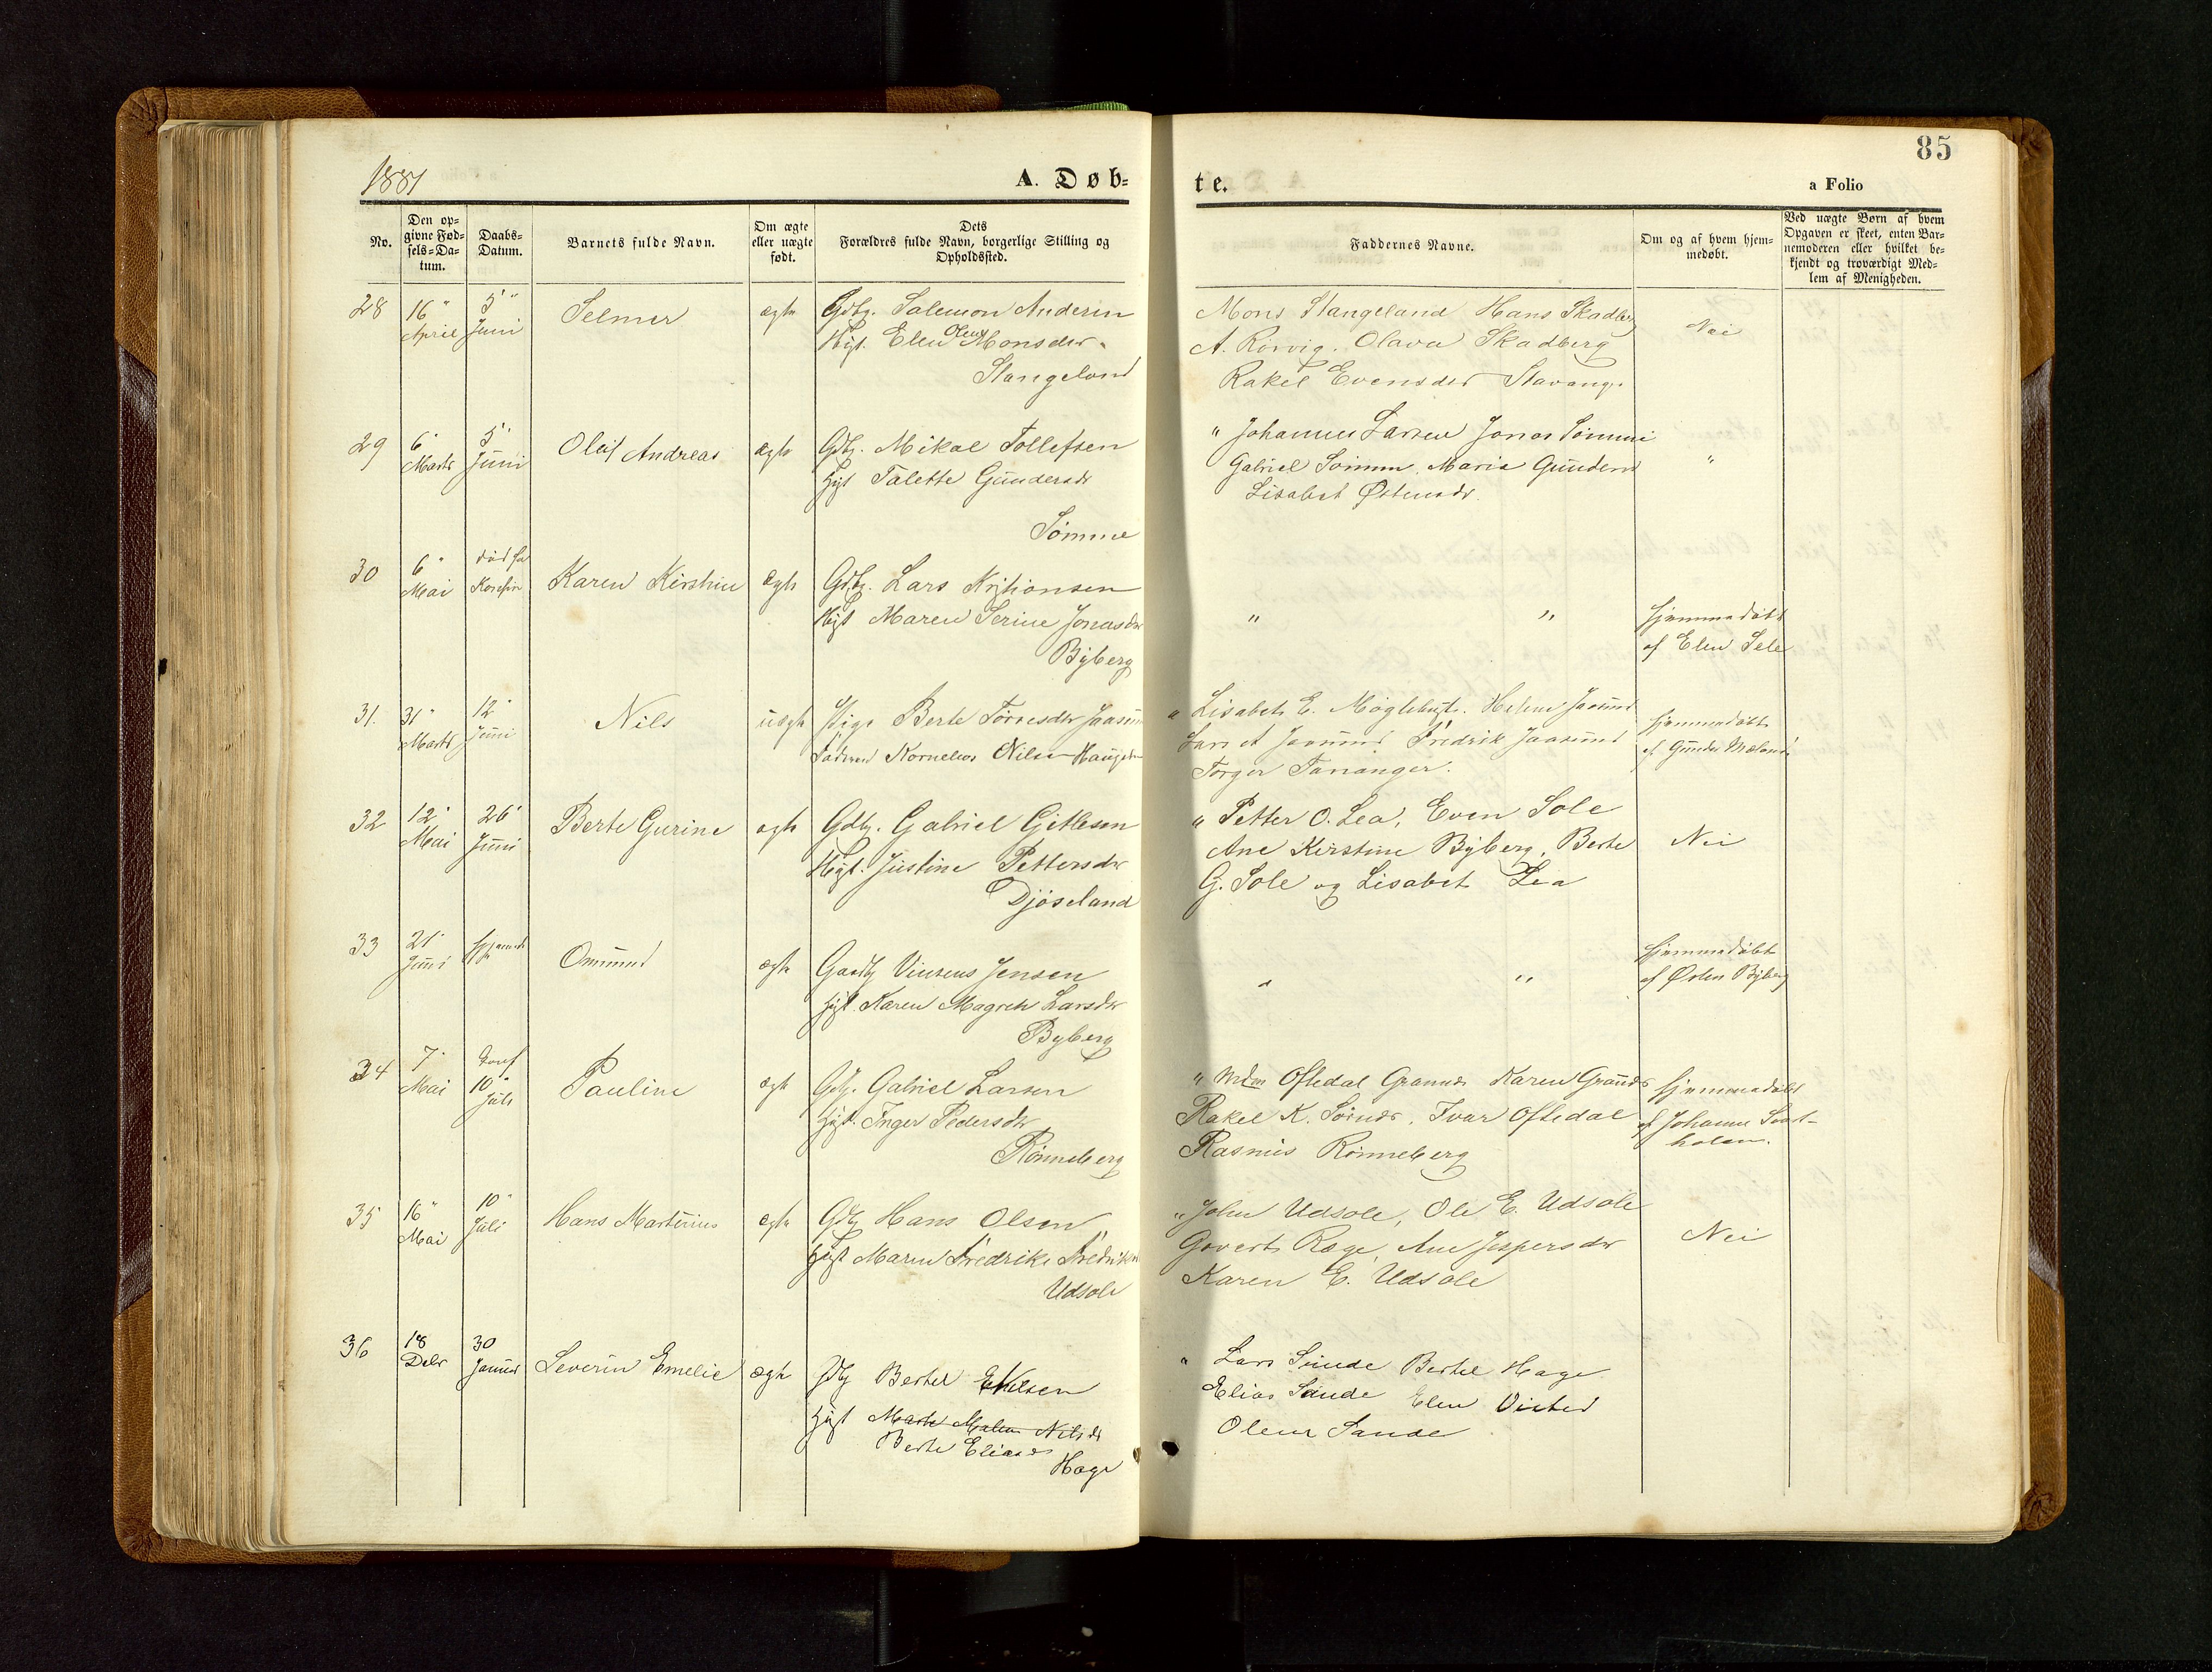 85
1881
A. Døb=
te.
a Folio
No.
Den op=
givne Fød=
sels=Da=
tum.
Daabs=
Datum.
Barnets fulde Navn.
Om ægte
eller uægte
født.
Dets
Forældres fulde Navn, borgerlige Stilling og
Opholdssted.
Faddernes Navne.
Om og af hvem hjem=
medøbt.
Ved uægte Børn af hvem
Opgaven er skeet, enten Bar=
nemoderen eller hvilket be=
kjendt og troværdigt Med=
lem af Menigheden.
28 16" April 5" Juni Selmer ægte Gdbr. Salemon Andersen
Elen Olene Monsdtr.
Stangeland
Mons Stangeland Hans Skadberg
A. Rørvig. Olava Skadberg
Rakel Evensdtr Stavang.
Nei
29 6" Marts 5" Juni Olaf Andreas ægte Gdbr. Mikal Tollefsen
Talette Gundersdr
Sømme
" Johannes Larsen Jonas Sømme
Gabriel Sømme, Maria Gundersd
Lisabet Østensdr.
"
30 6" Mai død før Karen Kirstine ægte Gdbr. Lars Kristiansen
Maren Serine Jonasdr
Byberg
" "
hjemmedøbt
af Elen Sele
31. 31" Marts 12" Juni Nils uægte Pige Berte Torresdtr Jaasund
Faderen Kornelius Nilsen Haugst
" Lisabet E. Møglebust. Helene Jaasund
Lars A Jaasund Fredrik Jaasund
Torger Tananger.
hjemmedøbt
af Gunder Meland
32 12" Mai 26" Juni Berte Gurine ægte Gdbr. Gabriel Gitlesen
Justine Pettersdr
Djøseland
" Petter O. Lea, Even Sole
Ane Kirstine Byberg, Berte
G. Sole og Lisabet Lea
Nei
33 21" Juni Ommund ægte Gaardb Vinsens Jensen
Karen Magrete Larsdr
Byberg
" "
hjemmedøbt
af Østen Byberg
34 7" Mai 10" Juli Pauline ægte Gdbr. Gabriel Larsen
Inger Pedersdr
Rønneberg
" Mdm Oftedal Grannes Karen Grannes
Rakel K. Sørnes, Ivar Oftedal
Rasmus Rønneberg
hjemmedøbt
af Johanne
holen.
35 16" Mai 10" Juli Hans Martinius ægte Gdbr Hans Olsen
Maren Fredrike Fredriks
Udsole
" John Udsole, Ole E. Udsole
Govert Rege, Ane Jespersdr
Karen E. Udsole
Nei
36 18 Dcbr 30 Januar Severin Emelie ægte Gdbr Bertel
Marte Malene Nilsdr
Berte Eliasdr
Hage
" Lars Sunde Bertel Hage
Elias Sande Elen Visted
Olene Sande